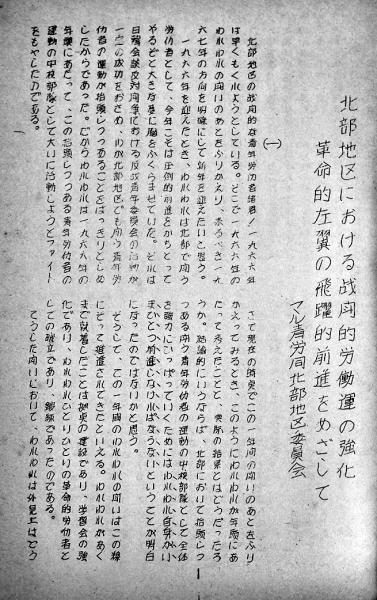 北部地区における战闘的労働運の強化
革命的左翼の飛躍的前進をめざして
マル青労同北部地区委員会
(一)
北部地区の战闘的な青年労仂者諸君！一九六六年
は早くも氷ようとしている。そこで一九六六年の
われわれの闘いのあとをふりかえり、来るべき一九
六七年の方向を明確にして新年を迎えたいと思う。
一九六六年を迎えたとき、われわれは北部で闘う
労仂者として、今年こそは圧倒的前進をかちとって
やるぞと大きな夢に胸をふくらませていた。それは
日韓会談反対闘争における反战青年委員会の活動が
一定の成功をおさめ、わが北部地区でも闘う青年労
仂者の運動が抬頭しつつあることをはっきりとしめ
したからであった。だからわれわれは一九六六年の
年頭にあたって、この抬頭しつつある青年労仂者の
運動の中核部隊として大いに活動しようとファイト
をもやしたのである。
さて現在の時点でこの一年間の闘いのあとをふり
かえってみるとき、このようにわれわれが年頭にあ
たって考えたことと、実際の結果とはどうだったろ
うか。結論的にいうならば、北部において抬頭しつ
つある闘う青年労仂者の運動の中核部隊として全体
を強力にひっぱっていくためにはわれわれ自身がい
まひとつ前進しなければならないということが明白
になったのではないかと思う。
そうして、この一年間のわれわれの闘いはこの線
にそって推進されてきたといえる。われわれがあく
まで執着したことは拠点の建設であり、学習会の強
化であり、われわれひとりひとりの革命的労仂者と
しての確立であり、鍛錬であったのである。
こうした闘いにおいて、われわれは外見上はどう
1